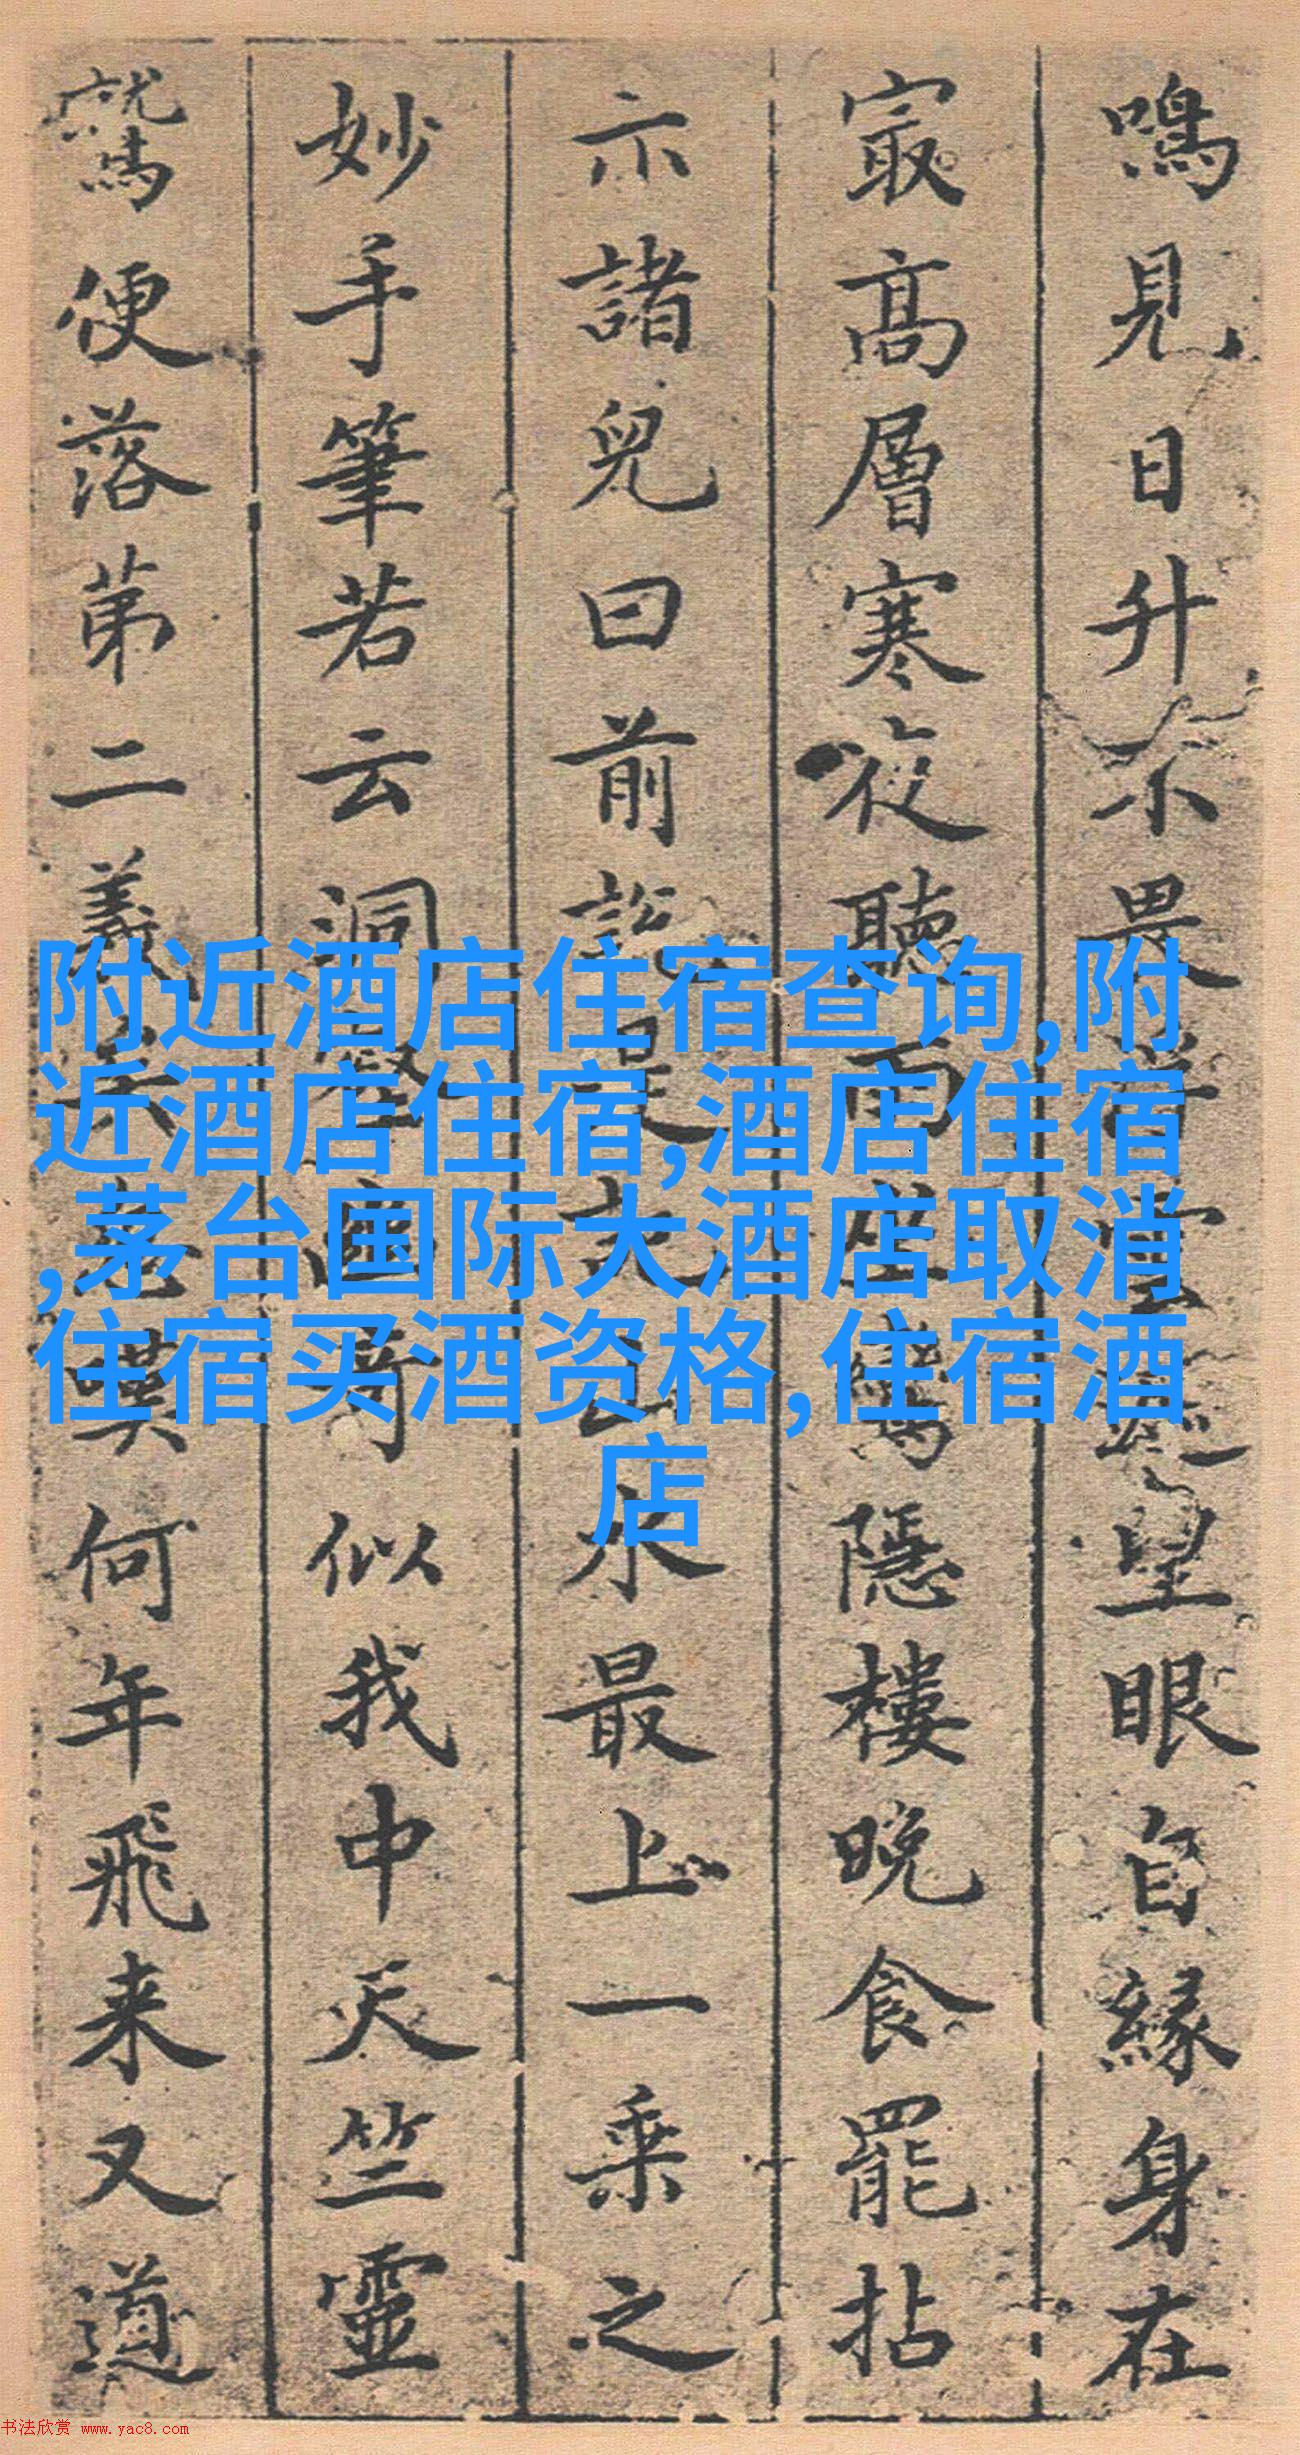 鳴見日升不畏浮雲遮望眼自緣身在
冣高層寒夜聽雨隱樓晚食罷拈
示諸兒曰前說是水最上一乗之
妙手筆若云洞壑幽奇似我中天竺靈
鷲便落苐二義矣嘆何年飛来又道
附近酒店住宿查询,附
近酒店住宿,酒店住宿
,茅台国际大酒店取消
住宿买酒资格,住宿酒
店
书法欣赏 www.yac8.com